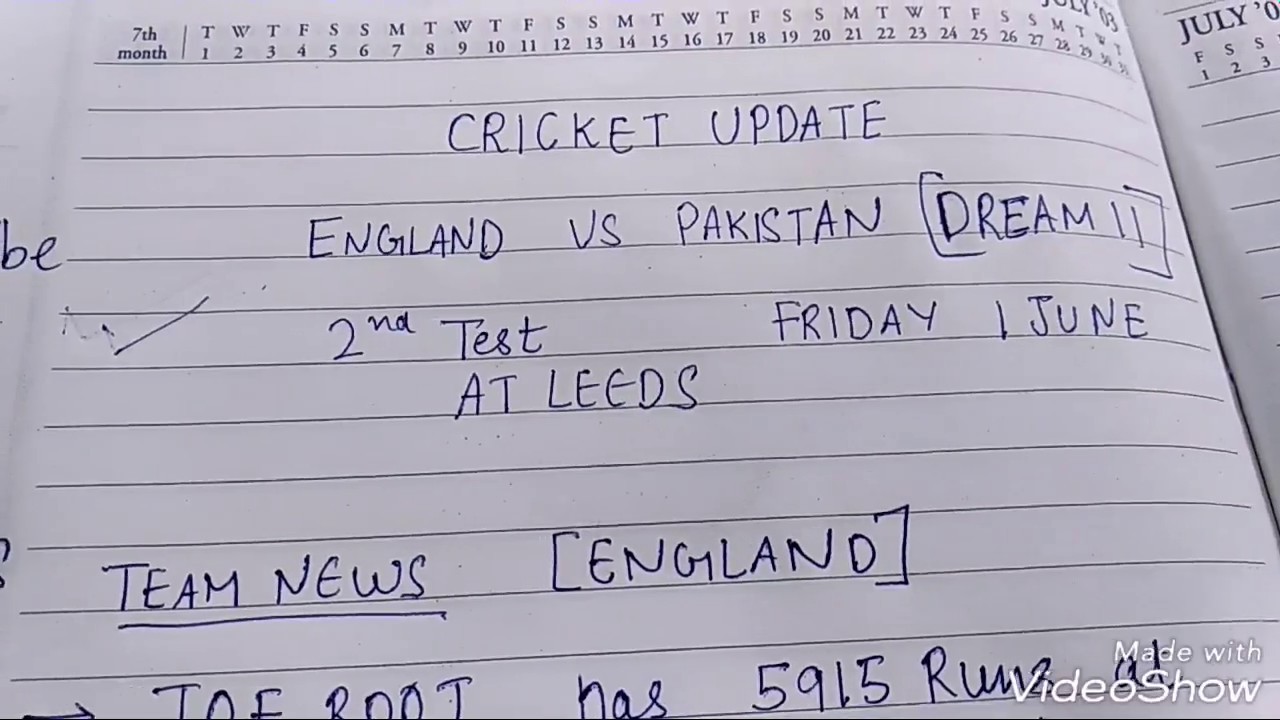 JULY '03
7th month T W T F S S M T W T F S S M T W T F S S M T W T F S S M T W T
1 2 3 4 5 6 7 8 9 10 11 12 13 14 15 16 17 18 19 20 21 22 23 24 25 26 27 28 29 30 31
JULY '0
F S S
1 2 3
CRICKET UPDATE
ENGLAND VS PAKISTAN [DREAM 11]
be
2nd Test FRIDAY 1 JUNE
AT LEEDS
TEAM NEWS [ENGLAND]
→ JOE ROOT has 5915 Runs at
Made with
VideoShow